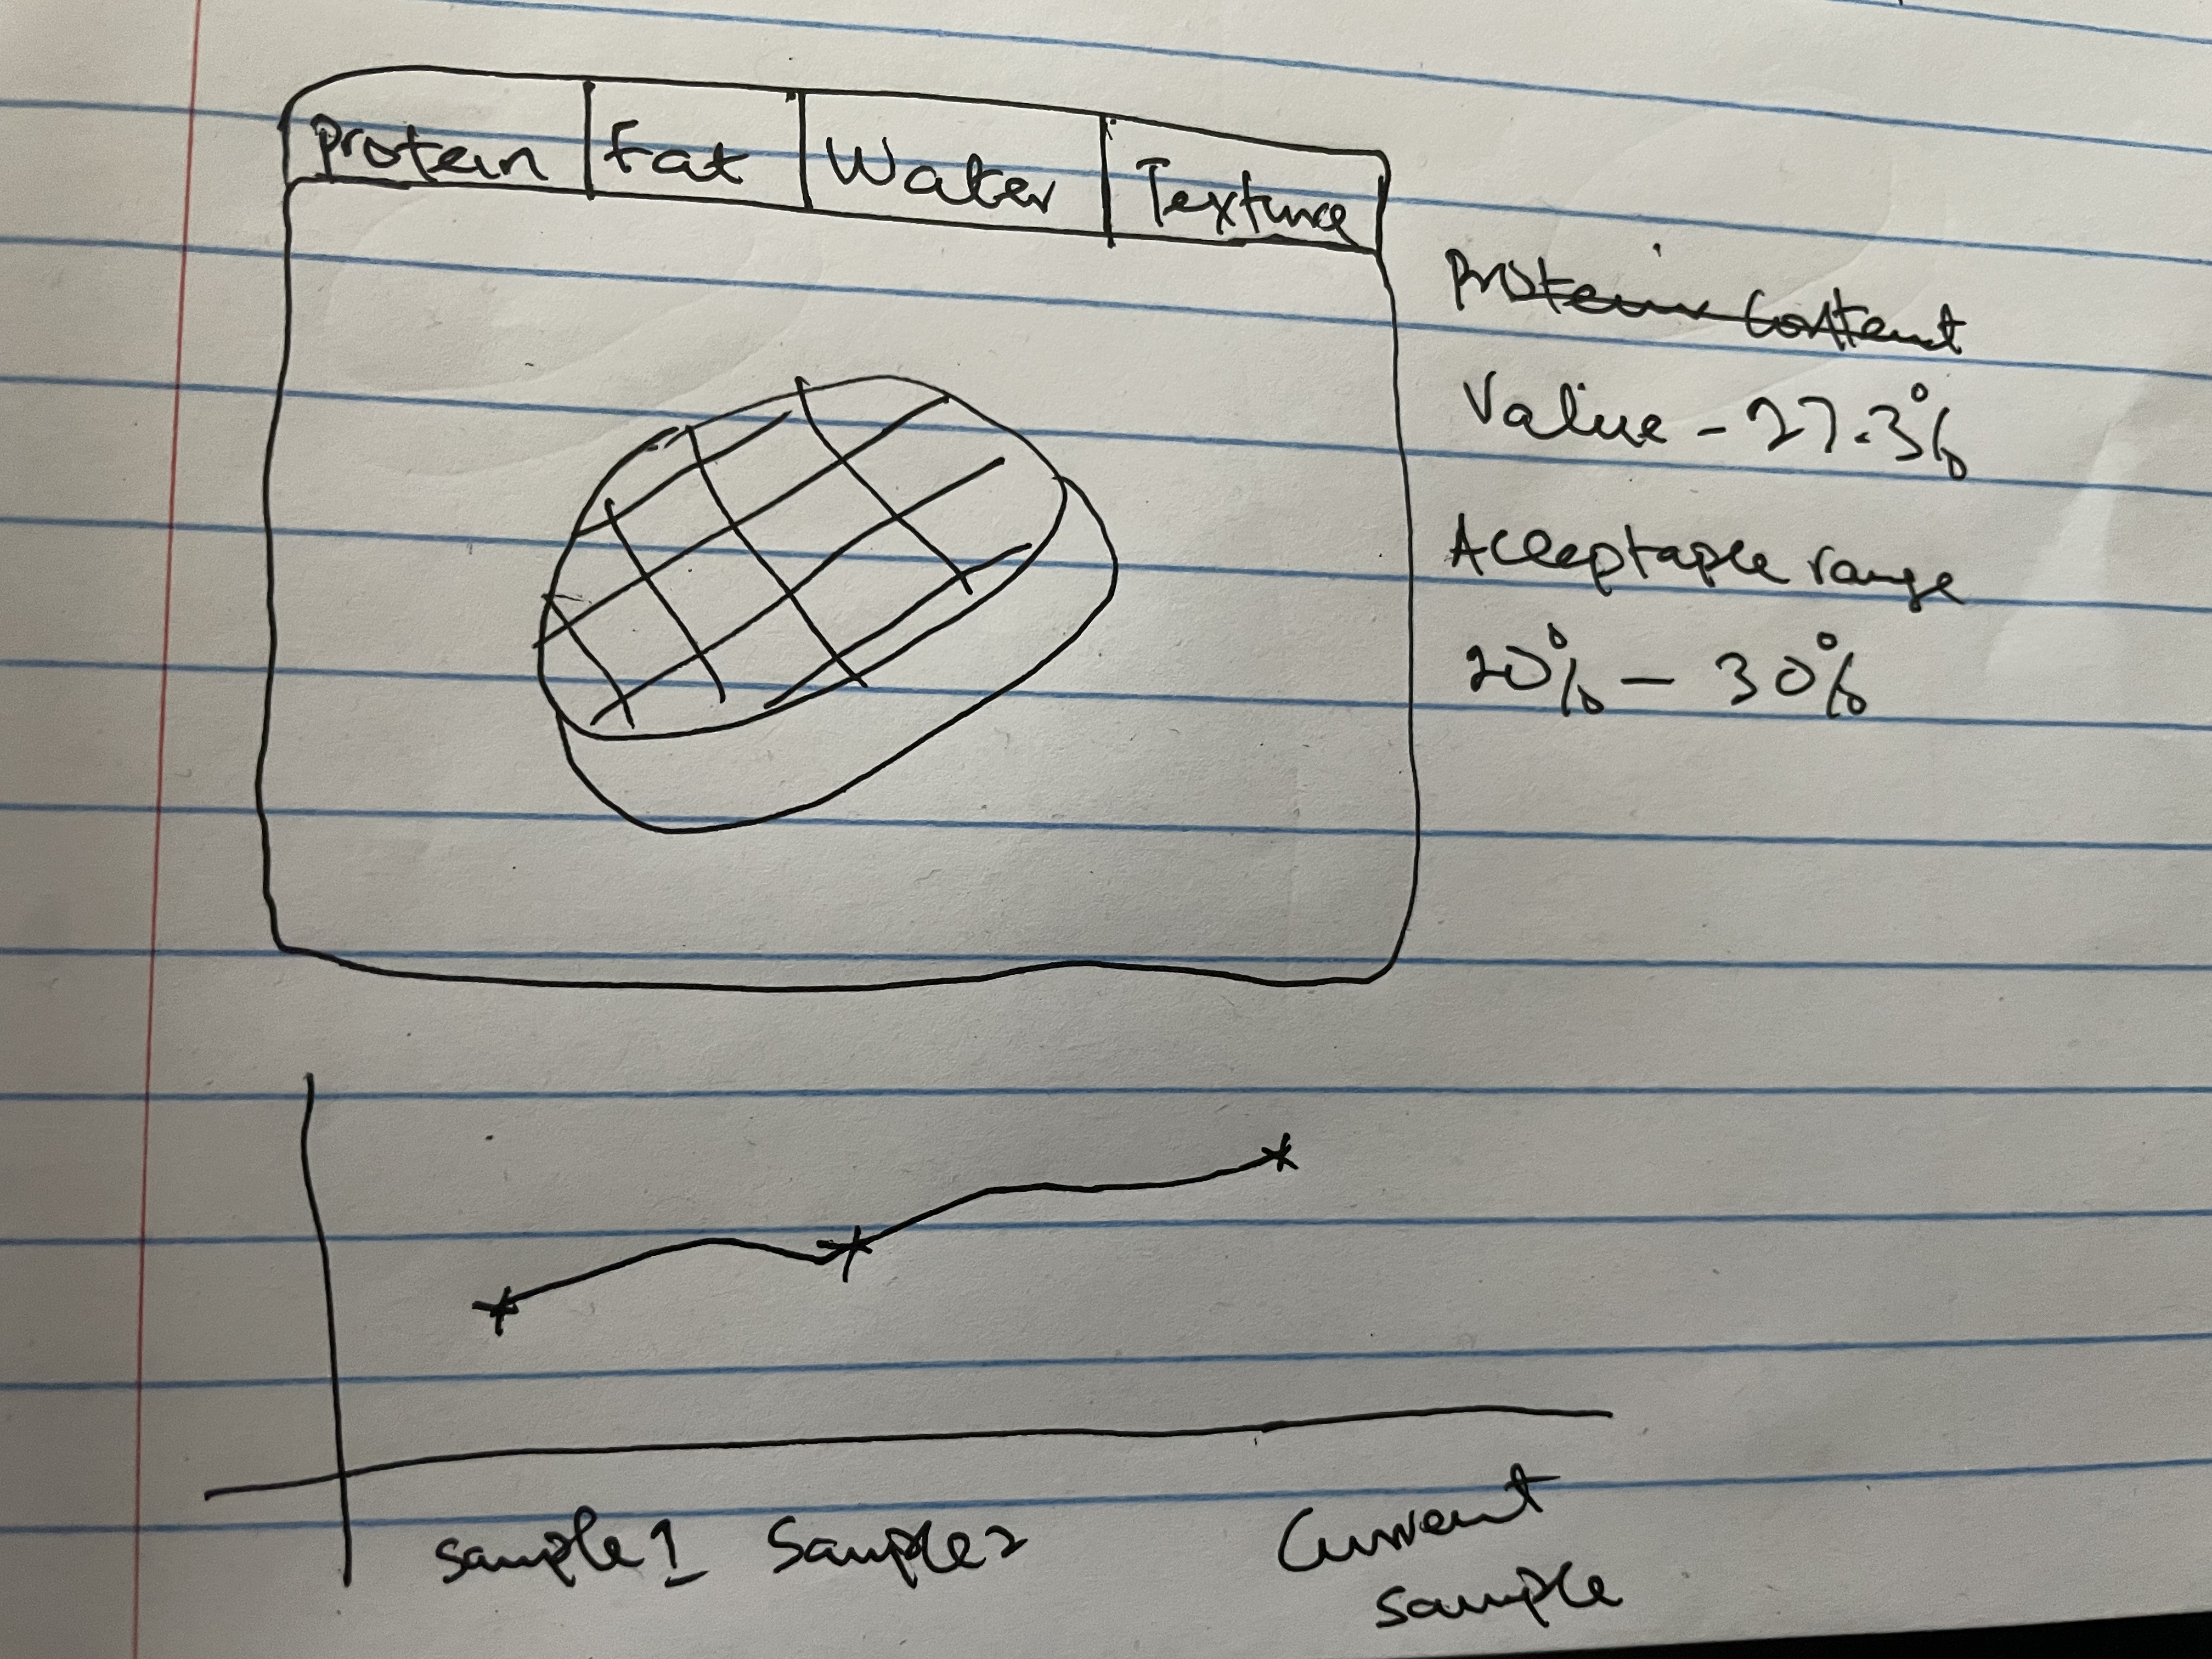 Protein Fat Water Texture
Protein Content
Value - 27.3%
Acceptable range
20% - 30%
Sample 1 Sample 2 Current
Sample